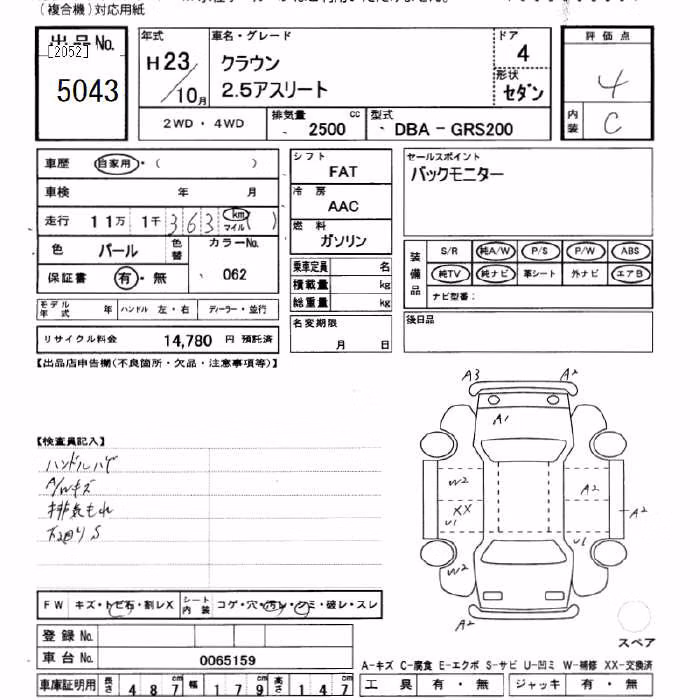 (複合機)対応用紙
出品No.
[2052]
5043
年式
H23/10月
車名・グレード
クラウン
2.5アスリート
ドア
4
形状
セダン
評価点
4
内装
C
2WD・4WD
排気量 2500 cc
型式 DBA - GRS200
車歴 自家用・( )
車検 年 月
走行 11万 1千 363 km マイル ( )
色 パール 色替
カラーNo.
062
保証書 有・無
モデル年式 年 ハンドル 左・右 ディーラー・並行
リサイクル料金 14,780 円 預託済
シフト
FAT
冷房
AAC
燃料
ガソリン
乗車定員 名
積載量 kg
総重量 kg
名変期限
月 日
セールスポイント
バックモニター
装備品
S/R 純A/W P/S P/W ABS
純TV 純ナビ 革シート 外ナビ エアB
ナビ型番:
後日品
【出品店申告欄(不良箇所・欠品・注意事項等)】
【検査員記入】
ハンドルハゲ
A/Wキズ
排気もれ
下廻りS
A3 A2
A1
W2
A2
XX
A2
U1
U1
W2
A2
スペア
FW キズ・トビ石・割レX シート内装 コゲ・穴・汚レ・シミ・破レ・スレ
登録No.
車台No. 0065159
車庫証明用 長さ 487 cm 幅 179 cm 高さ 147 cm
A-キズ C-腐食 E-エクボ S-サビ U-凹ミ W-補修 XX-交換済
工具 有・無 ジャッキ 有・無